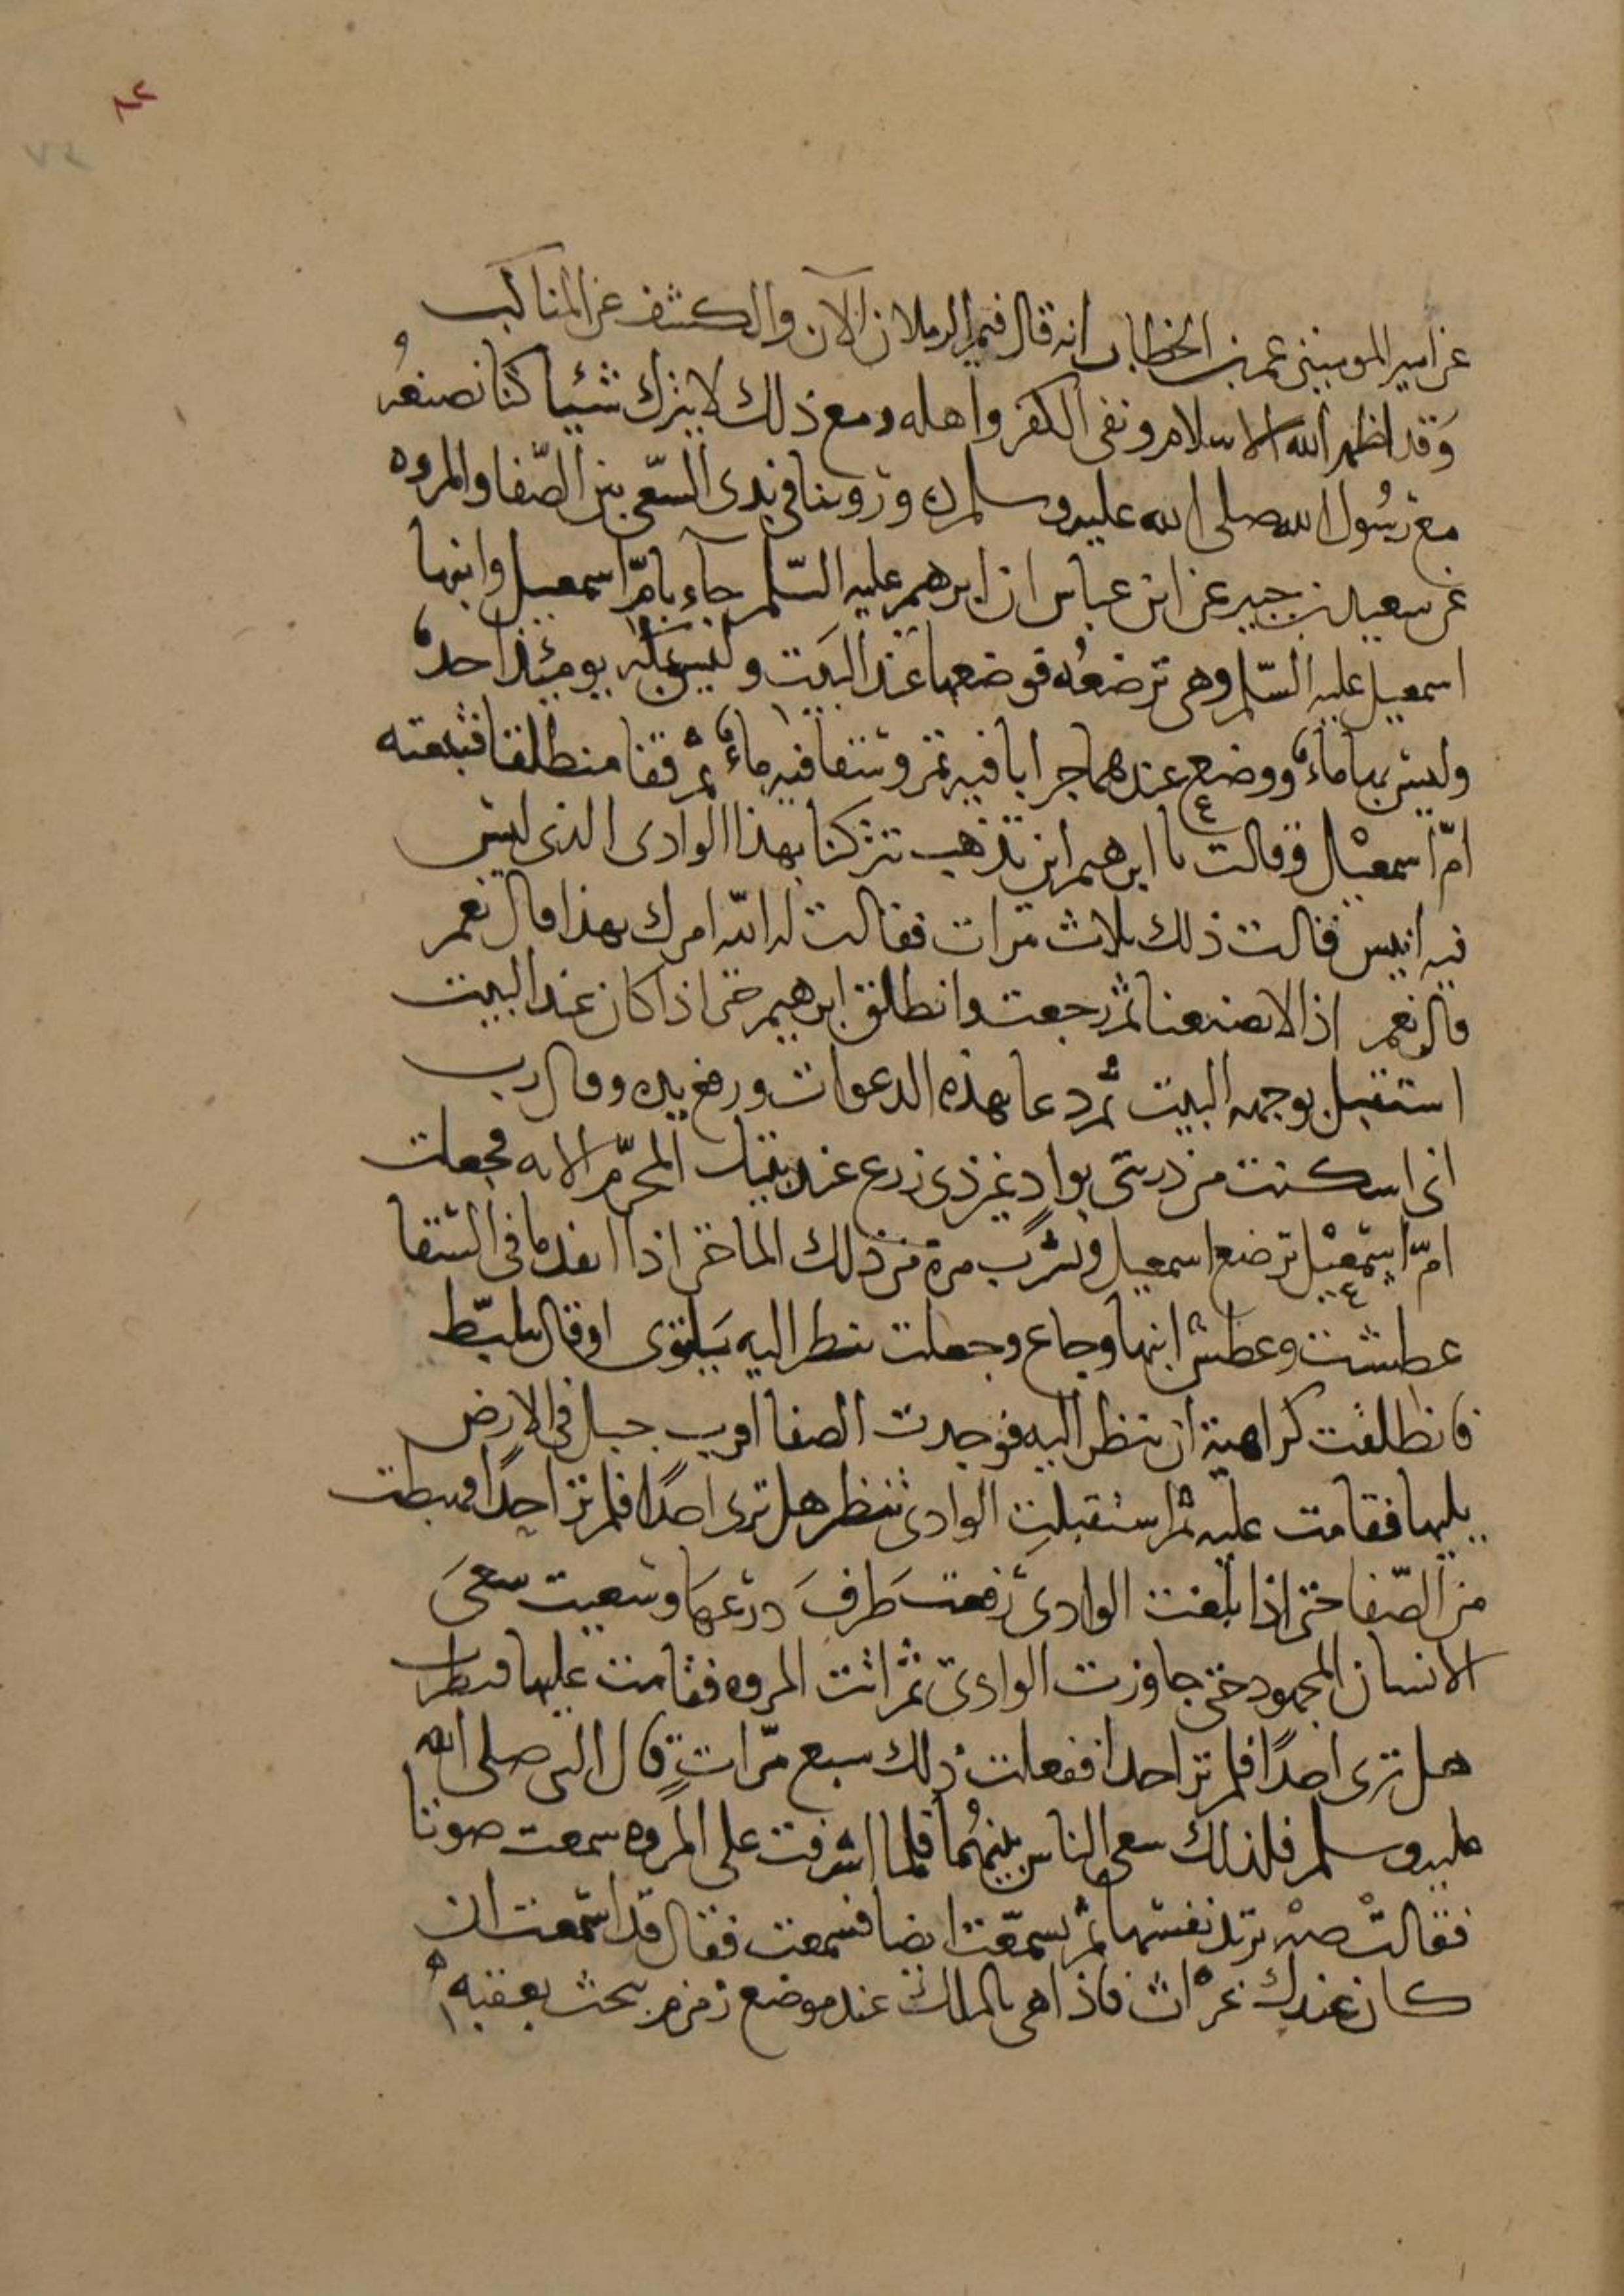 ٨٢
٧٢
عن امير المومنين عمر بن الخطاب انه قال فيم الرملان الآن والكشف عن المناكب
وَقد اظهر الله الاسلام ونفى الكفر واهله ومع ذلك لا نترك شيئا كنا نصنعُه
مع رسُول الله صلى الله عليه وسلم ه وروينا فى بدى السّعى بين الصّفا والمروه
عن سعيد بن جبير عن ابن عباس ان ابرهيم عليه السّلم جآء بامّ اسمعيل وابنها
اسمعيل عليه السّلم وهى ترضعُه فوضعها عند البَيت وليس بمكه يومئذ احدٌ
وليس بها ماءٌ ووضع عندهما جرابا فيه تمر وسقا فيه ماءٌ ثم قفا منطلقا فتبعته
امّ اسمعيل فقالت يا ابرهيم اين تذهب تتركنا بهذا الوادى الذى ليس
فيه انيس قالت ذلك ثلاث مرات فقالت له الله امرك بهذا قال نعم
قال نعم اذا لا يضيعنا ثم رجعت وانطلق ابرهيم حتى اذا كان عند البيت
استقبل بوجهه البيت ثم دعا بهذه الدعوات ورفع يديه وقال رب
انى اسكنت من ذريتى بوادٍ غير ذى زرع عند بيتك المحرّم الايه فجعلت
امّ اسمعيل ترضع اسمعيل وتشرب مرة من ذلك الما حتى اذا انفد ما فى السقا
عطشت وعطش ابنها وجاع وجعلت تنظر اليه يَتلوى او قال يتلبّط
فانطلقت كراهية ان تنظر اليه فوجدت الصفا اقرب جبل فى الارض
يليها فقامت عليه ثم استقبلت الوادى تنظر هل ترى احدًا فلم تر احدًا فهبطت
من الصّفا حتى اذا بلغت الوادى رفعت طَرفَ درعهَا وسَعيت سعىَ
الانسان المجهود حتى جاوزت الوادى ثم اتت المروه فقامت عليها فنظرت
هل ترى احدًا فلم تر احدا ففعلت ذلك سبع مرّاتٍ قال النبى صلى الله
عليه وسلم فلذلك سعى الناس بينهُما فلما اشرفت على المروه سمعت صوتا
فقالت صه تريد نفسَها ثم تسمّعَت ايضا فسمعت فقال قد اسمعت ان
كان عندك غواث فاذا هى بالملك عند موضع زمزم يبحث بعقبه